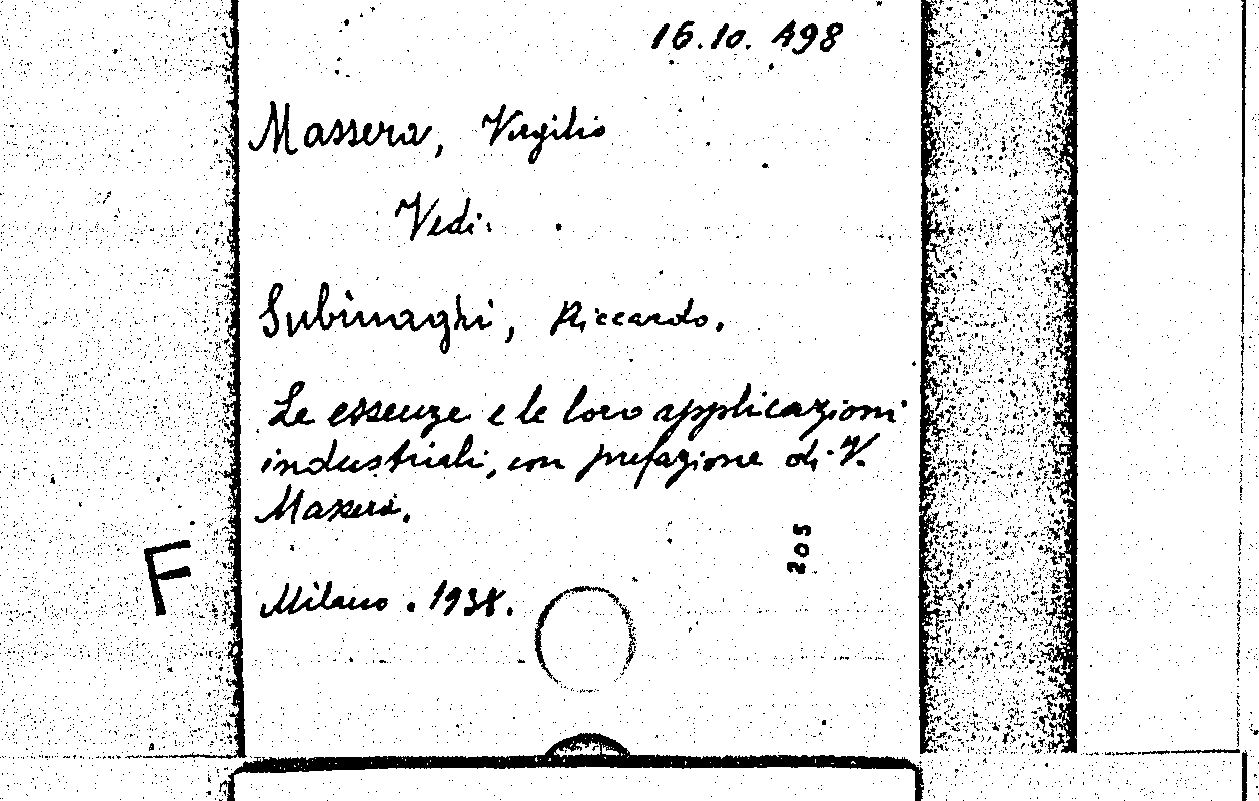 16.10. 498
Massera, Virgilio
Vedi.
Subinaghi, Riccardo.
Le essenze e le loro applicazioni
industriali, con prefazione di V.
Massera.
205
F
Milano . 1938.